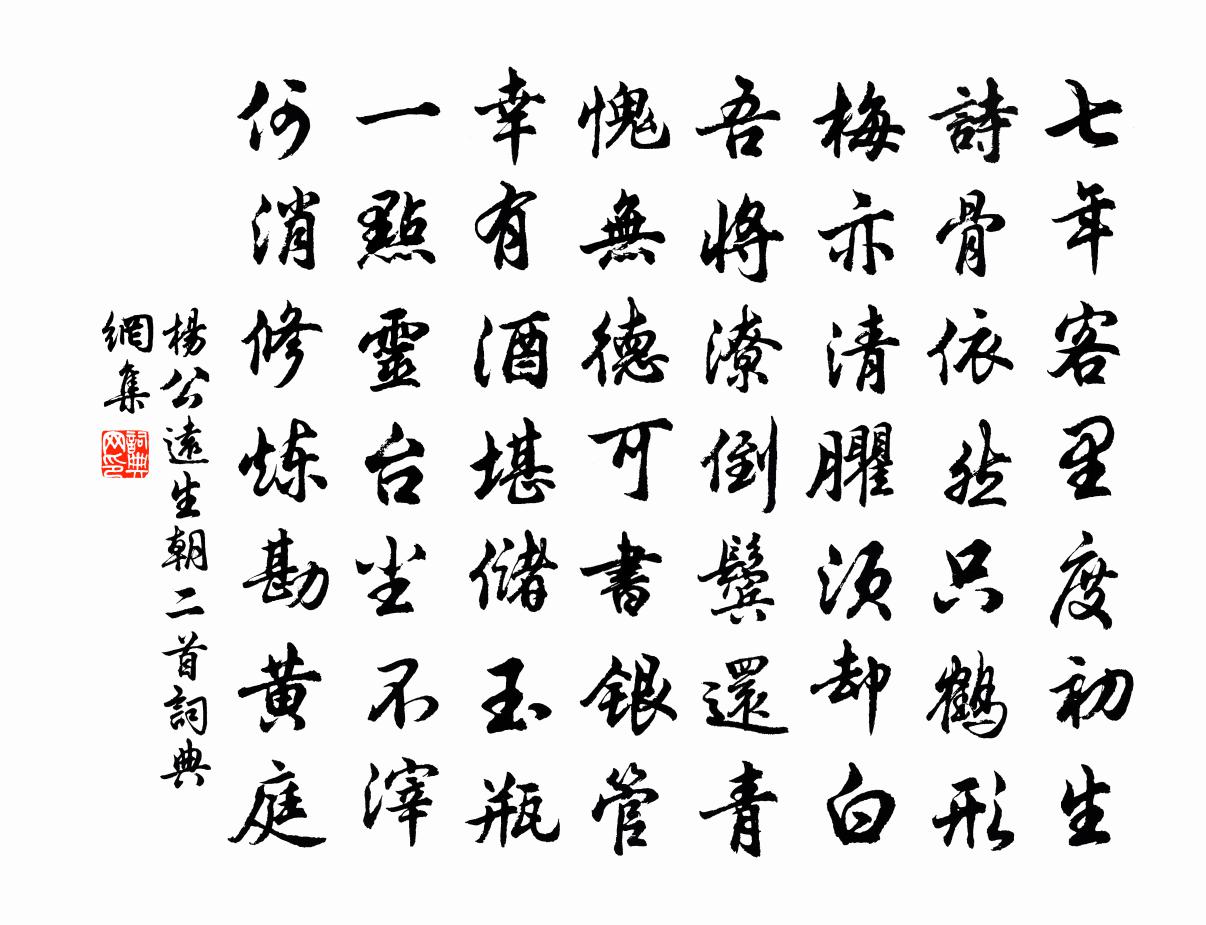 七年客里度初生
詩骨依然只鶴形
梅亦清臞須却白
吾將潦倒鬓還青
愧無德可書銀管
幸有酒堪儲玉瓶
一點靈台尘不滓
何消修炼勘黄庭
楊公遠生朝二首詞典
網集
詞典
网印